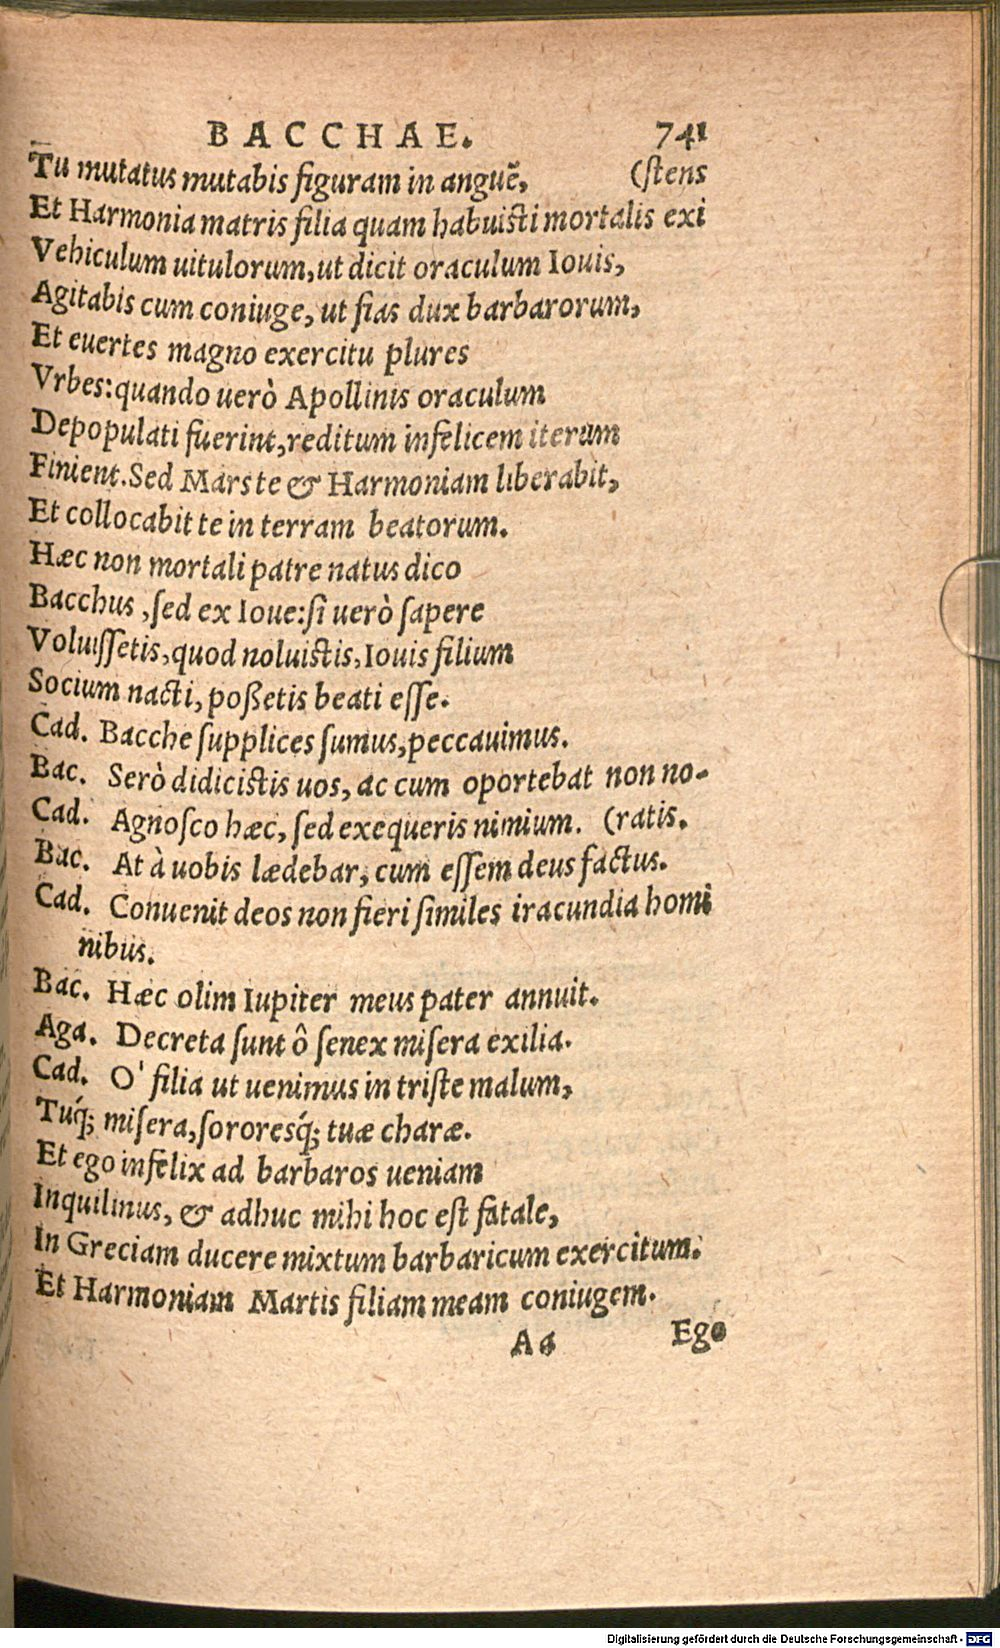 BACCHAE. 741
Tu mutatus mutabis figuram in anguē, (ſtens
Et Harmonia matris filia quam habuiſti mortalis exi
Vehiculum uitulorum, ut dicit oraculum Iouis,
Agitabis cum coniuge, ut fias dux barbarorum,
Et euertes magno exercitu plures
Vrbes: quando uerò Apollinis oraculum
Depopulati fuerint, reditum infelicem iterum
Finient. Sed Mars te & Harmoniam liberabit,
Et collocabit te in terram beatorum.
Hæc non mortali patre natus dico
Bacchus, ſed ex Ioue: ſi uerò ſapere
Voluiſſetis, quod noluiſtis, Iouis filium
Socium nacti, poßetis beati eſſe.
Cad. Bacche ſupplices ſumus, peccauimus.
Bac. Serò didiciſtis uos, ac cum oportebat non no-
Cad. Agnoſco hæc, ſed exequeris nimium. (ratis.
Bac. At à uobis lædebar, cum eſſem deus factus.
Cad. Conuenit deos non fieri ſimiles iracundia homi
nibus.
Bac. Hæc olim Iupiter meus pater annuit.
Aga. Decreta ſunt ô ſenex miſera exilia.
Cad. O' filia ut uenimus in triſte malum,
Tuq́; miſera, ſororesq́; tuæ charæ.
Et ego infelix ad barbaros ueniam
Inquilinus, & adhuc mihi hoc eſt fatale,
In Greciam ducere mixtum barbaricum exercitum.
Et Harmoniam Martis filiam meam coniugem.
Aa Ego
Digitalisierung gefördert durch die Deutsche Forschungsgemeinschaft - DFG